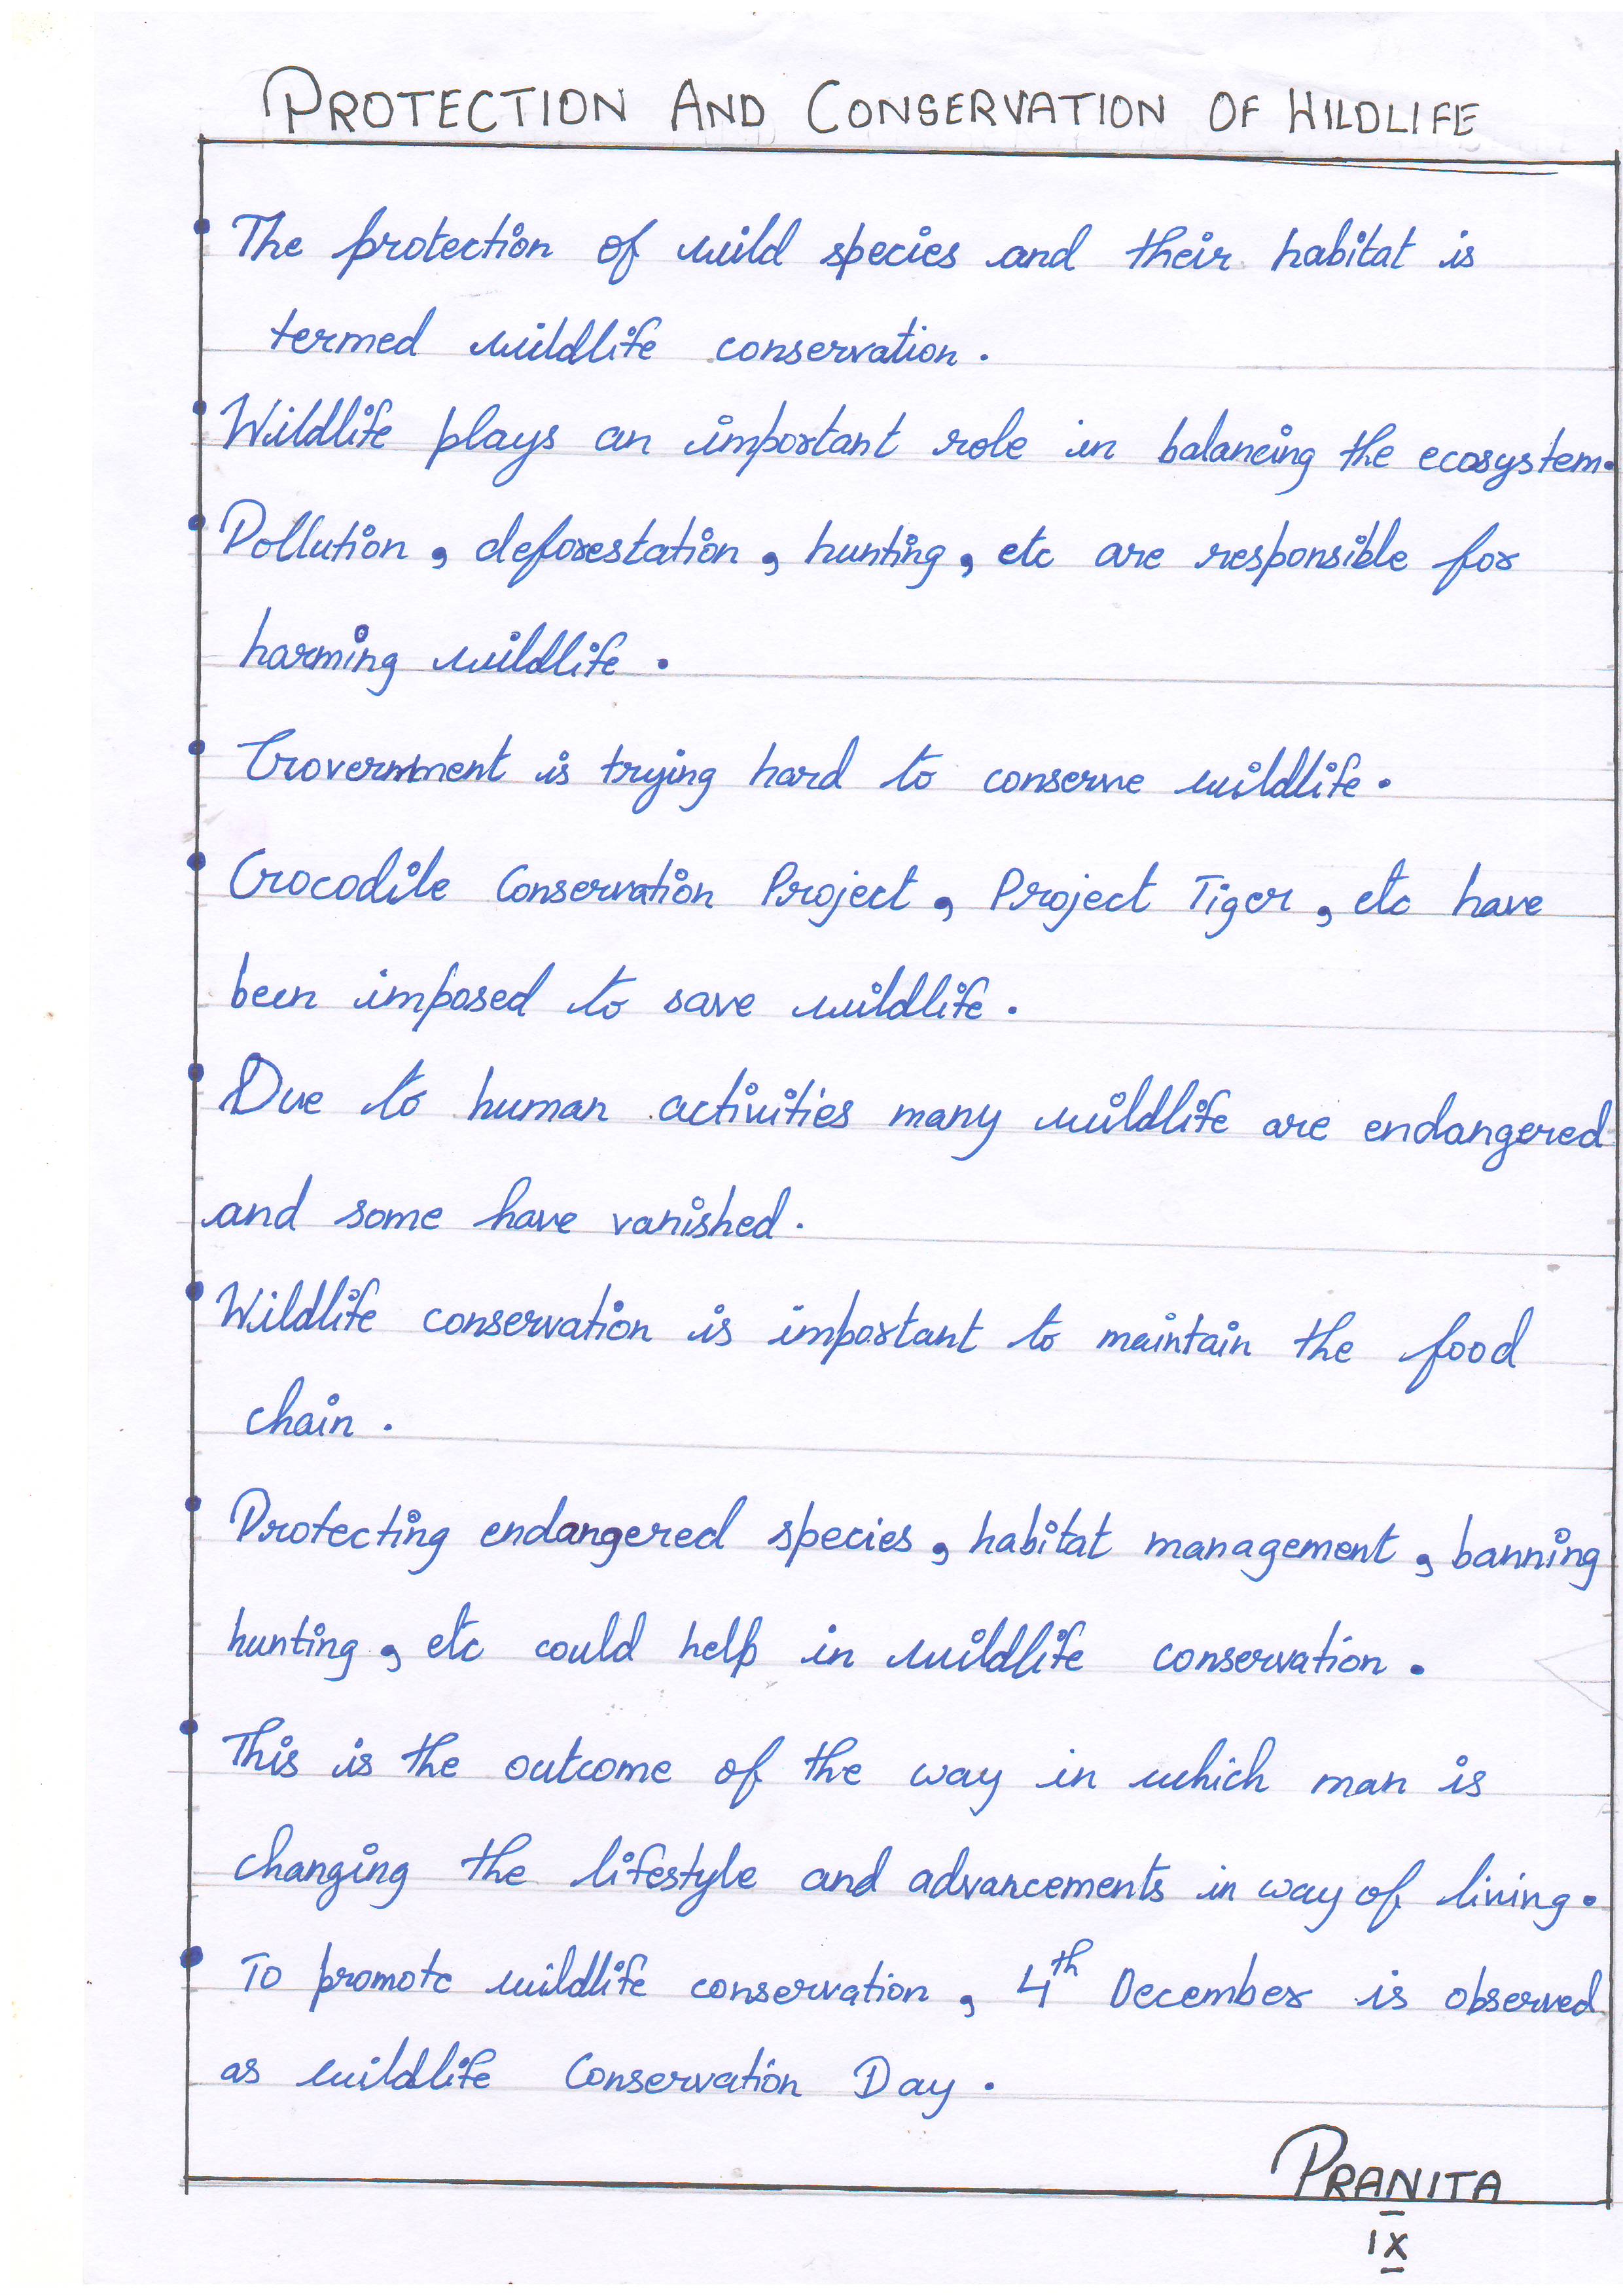 PROTECTION AND CONSERVATION OF WILDLIFE
• The protection of wild species and their habitat is
termed wildlife conservation.
• Wildlife plays an important role in balancing the ecosystem.
• Pollution, deforestation, hunting, etc are responsible for
harming wildlife.
• Government is trying hard to conserve wildlife.
• Crocodile Conservation Project, Project Tiger, etc have
been imposed to save wildlife.
• Due to human activities many wildlife are endangered
and some have vanished.
• Wildlife conservation is important to maintain the food
chain.
• Protecting endangered species, habitat management, banning
hunting, etc could help in wildlife conservation.
• This is the outcome of the way in which man is
changing the lifestyle and advancements in way of living.
• To promote wildlife conservation, 4th December is observed
as wildlife Conservation Day.
PRANITA
IX